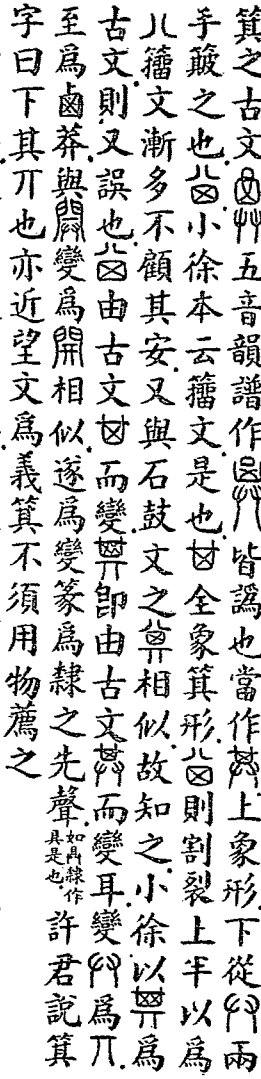 箕之古文𠔋五音韻譜作皆譌也當作上象形下從兩
手簸之也小徐本云籒文是也𠀠全象箕形則割裂上半以爲
八籒文漸多不顧其安又與石鼓文之相似故知之小徐以爲
古文則又誤也由古文𠀠而變卽由古文而變耳變爲
至爲鹵莽與變爲開相似遂爲變篆爲隸之先聲如隸作具是也許君說箕
字曰下其丌也亦近望文爲義箕不須用物薦之